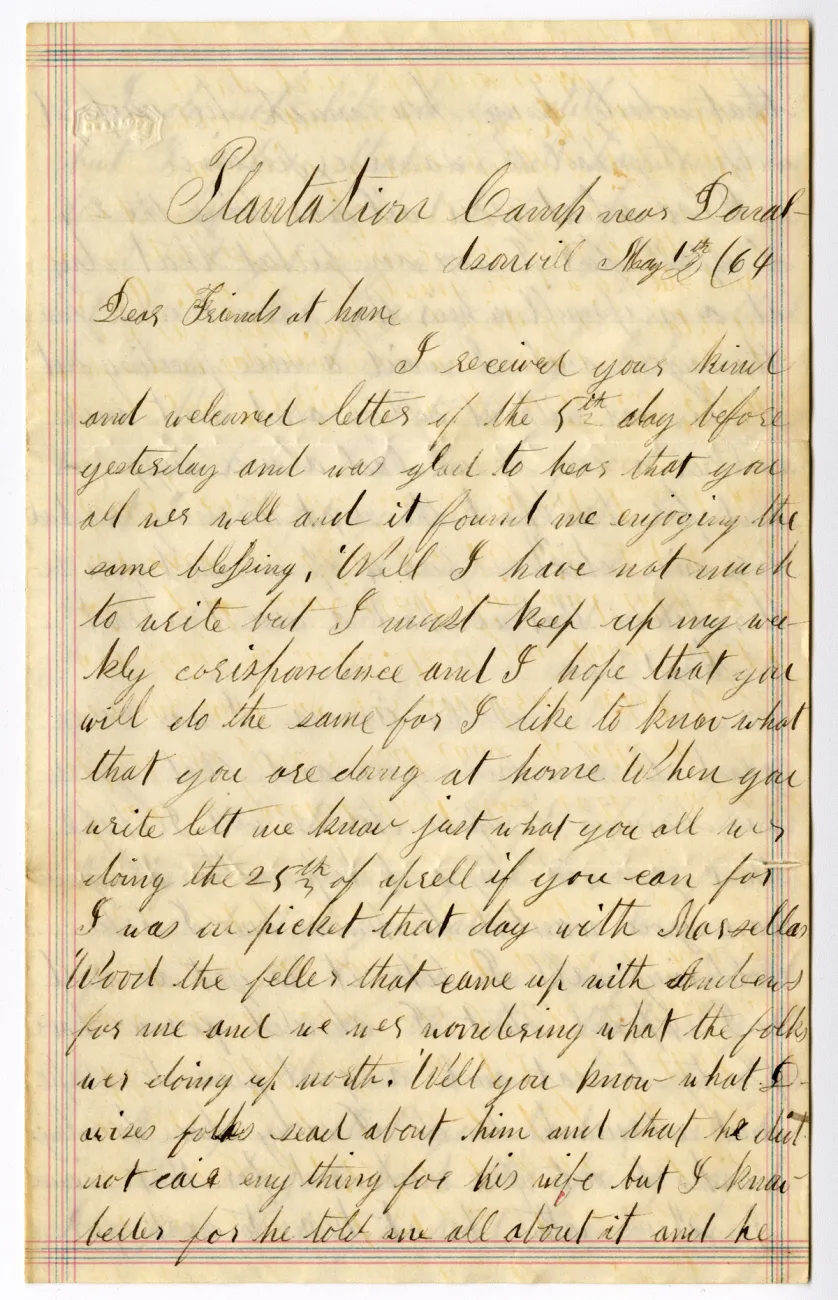 Plantation Camp near Donal-
dsonvill May 1th (64
Dear Friends at home
I received your kind
and welcomed letter of the 5th day before
yesterday and was glad to hear that you
all wer well and it found me enjoying the
same blessing, Well I have not much
to write but I must keep up my wee-
kly corispondence and I hope that you
will do the same for I like to know what
that you are doing at home When you
write lett me know just what you all wer
doing the 25th of aprell if you can for
I was on picket that day with Marsellas
Wood the feller that came up with Andrews
for me and we wer wondering what the folks
wer doing up north. Well you know what D-
avises folks sead about him and that he did
not caie eny thing for his wife but I know
better for he told me all about it and he